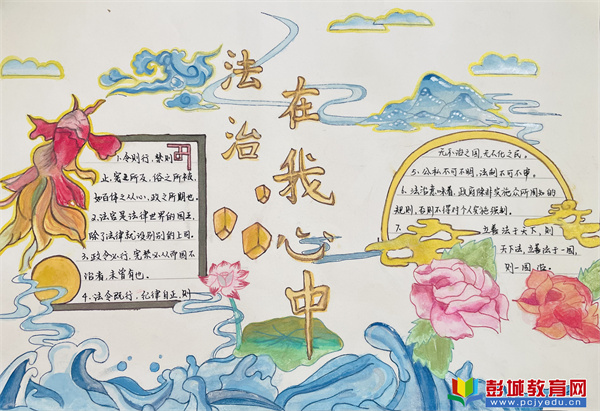 法治
在我心中
1.令则行,禁则
止,宪之所及,俗之所被,
如百体之从心,政之所期也。
2.法官是法律世界的国王,
除了法律就没有别的上司。
3.政令必行,宪禁必从,而国不
治者,未尝有也。
4.法令既行,纪律自正,则
无不治之国,无不化之民。
5.公私不可不明,法制不可不审。
6.法治意味着,政府除非实施众所周知的
规则,否则不得对个人实施强制。
7.立善法于天下,则
天下治,立善法于一国,
则一国治。
彭城教育网
www.pcjyedu.cn